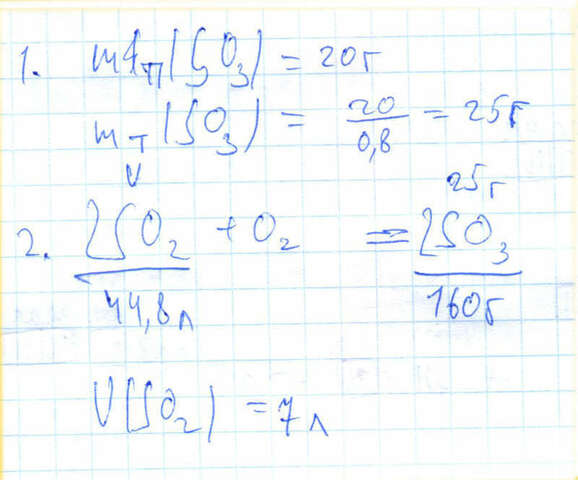 1. mп(SO3) = 20г
mт(SO3) = 20/0,8 = 25г
V 25г
2. 2SO2 + O2 = 2SO3
44,8л 160г
V(SO2) = 7л